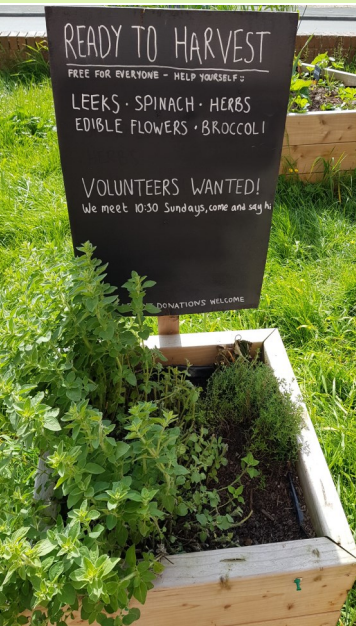 READY TO HARVEST
FREE FOR EVERYONE - HELP YOURSELF
LEEKS · SPINACH · HERBS
EDIBLE FLOWERS · BROCCOLI
VOLUNTEERS WANTED!
We meet 10:30 Sundays, come and say hi
DONATIONS WELCOME